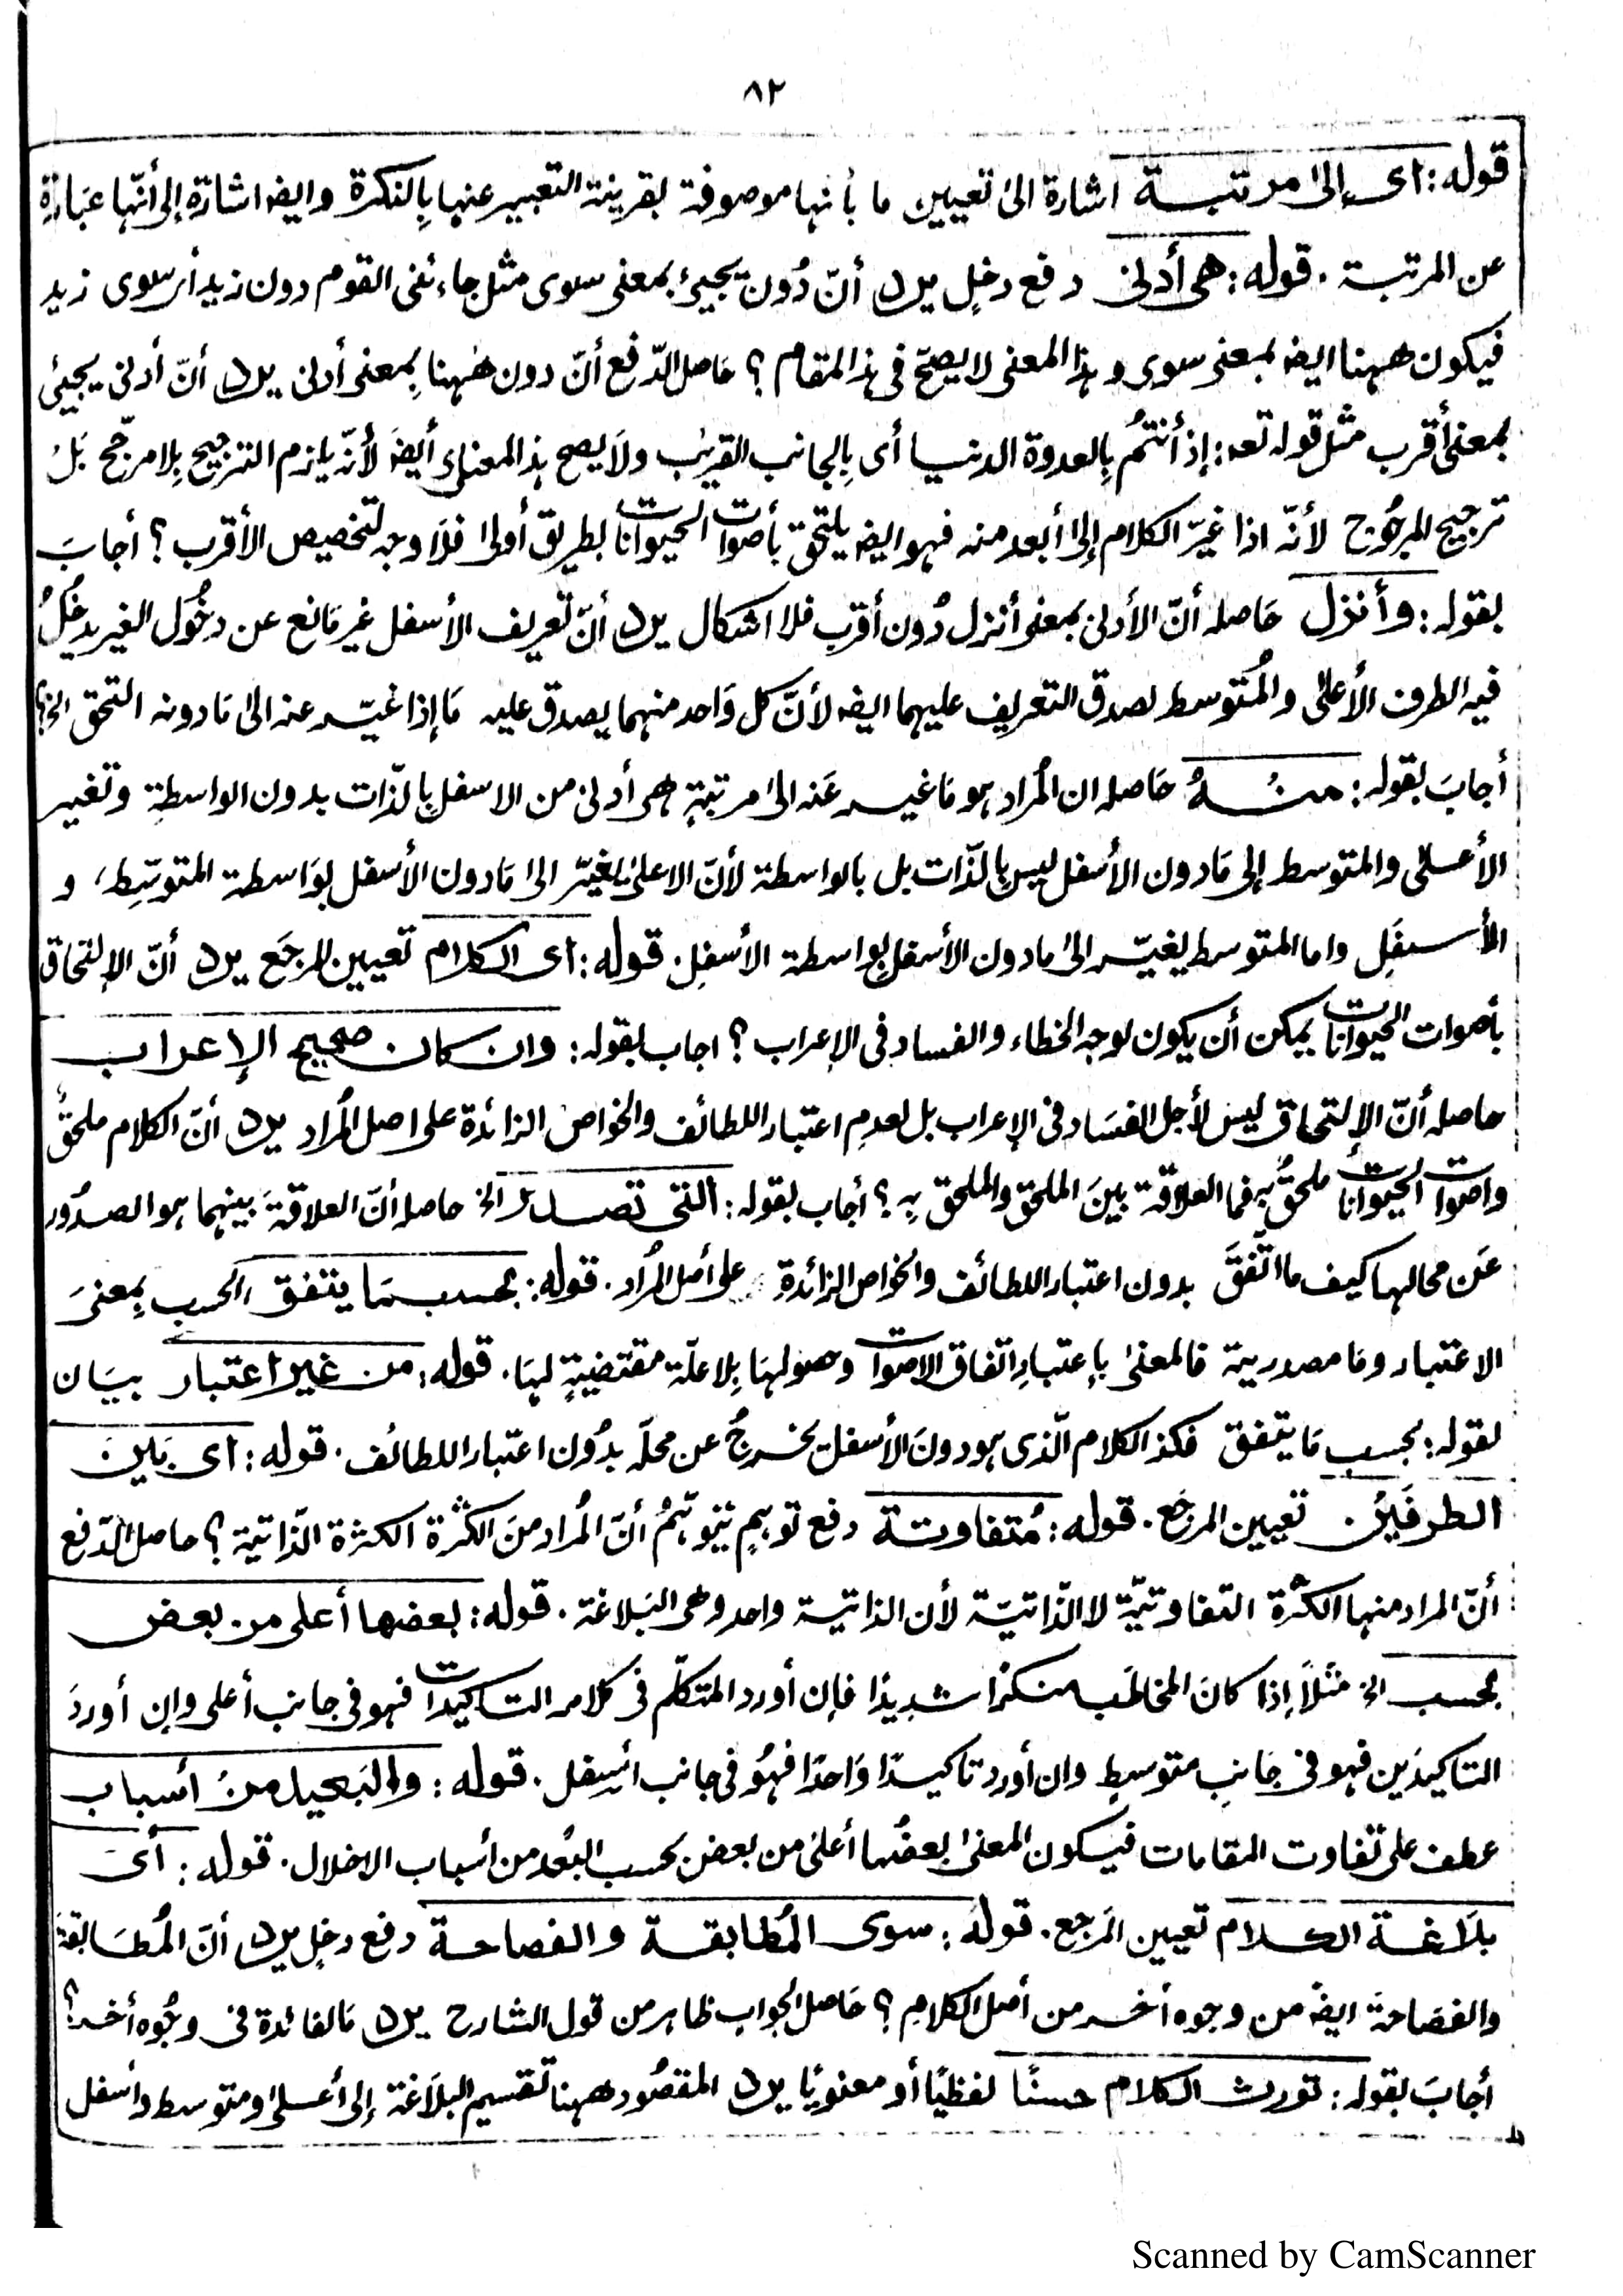 ٨٢
قوله: اى إلىٰ مرتبة اشارة الىٰ تعيين ما بأنها موصوفة بقرينة التعبير عنها بِالنكرة وايضا اشارة إلى أنّها عبَارة
عن المرتبة . قوله: هى أدنى دفع دخلٍ يرد أنّ دُون يجيئ بمعنى سوى مثل جاءنى القوم دون زيد أى سوى زيد
فيكون ههنا ايضا بمعنى سوى وهذا المعنى لا يصحّ فى هذا المقام ؟ حَاصل الدّفع أنّ دون هٰهنا بِمعنى أدنى يرد أنّ أدنى يجيئ
بمعنى أقرب مثل قوله تعـ : إذ أنتُم بِالعدوة الدنيا أى بِالجانب القريب ولَا يصح هذ المعنىٰ أيضَا لأنّه يلزم الترجيح بِلا مرجّح بَلْ
ترجيح المرجُوح لأنّه اذا غيّر الكلام إلىٰ أبعد منه فهو ايضا يلتحق بأصوات الحيوانات بطريق أولىٰ فلَا وجه لتخصيص الأقرب ؟ أجابَ
بقوله: وأنزل حَاصله أنّ الأدنى بمعنى أنزل دُون أقرب فلا اشكال يرد أنّ تعريف الأسفل غير مَانع عن دخُول الغير يدخُلُ
فيه الطرف الأعلىٰ والمُتوسط لصدق التعريف عليهما ايضا لأنّ كل وَاحد منهما يصدق عليه مَا إذا غيّر عنه الىٰ مَا دونه التحق الخ؟
أجابَ بقوله: منهُ حَاصله ان المُراد هو مَا غير عَنه الىٰ مرتبةٍ هى أدنى من الاسفل بِالذّات بدون الواسطة وتغيير
الأعلىٰ والمتوسط إلى مَا دون الأسفل ليس بِالذّات بل بالواسطة لأنّ الاعلىٰ يغيّر الىٰ مَا دون الأسفل بوَاسطة المتوسّطِ، و
الأسفلِ واما المتوسط يغيّر الىٰ ما دون الأسفل بِواسطة الأسفلِ. قوله: اى الكلام تعيين المرجَع يرد أنّ الإلتحاق
بأصوات الحيوانات يمكن أن يكون لوجه الخطاء والفساد فى الإعراب ؟ اجاب بقوله: وان كان صحيح الإعراب
حاصله أنّ الإلتحاق ليس لأجل الفسَاد فى الإعراب بل لعدمِ اعتبار اللطائف والخواص الزائدة على اصل المُراد يرد أنّ الكلام ملحقٌ
واصوات الحيوانات ملحقٌ به فما العلاقة بينَ الملحق والملحق بِه ؟ أجاب بقوله: التى تصدر الخ حاصله أنّ العلاقةَ بينهما هو الصدُور
عَن محالها كيف ما اتّفقَ بدون اعتبار اللطائف والخواص الزائدة على أصل المُراد. قوله: بحسب مَا يتفق الحسب بِمعنىَ
الاعتبار ومَا مصدرية فالمعنىٰ بإعتبارِ اتفاق الاصوات وحصولهَا بِلا علّة مقتضيةٍ لهَا. قوله: من غير اعتبار بيَان
لقوله: بحسب مَا يتفق فكذ الكلام الّذى هو دونَ الأسفل يخرجُ عن محلّه بدُون اعتبار اللطائف. قوله: اى بَينَ
الطرفَينِ تعيين المرجَع. قوله: مُتفاوتة دفع توهمٍ يتوهّمُ أنّ المُراد منَ الكثرة الكثرة الذّاتية ؟ حاصل الدّفع
أنّ المراد منها الكثرة التفاوتيّة لا الذّاتيّة لأن الذاتية واحد وهى البَلاغة. قوله: بعضها أعلى من بعض
بحسب الخ مثَلاً إذا كانَ المخاطَب منكرًا شديدًا فإن أورد المتكلّم فى كلامه التاكيدات فهو فى جانب أعلى وإن أوردَ
التاكيدَين فهو فى جَانبٍ متوسطٍ وان أورد تاكيدًا وَاحدًا فهُو فى جانب اسفل. قوله: والبَعيد منْ أسباب
عطف على تفاوت المقامات فيكون المعنىٰ بعضُها أعلىٰ من بعض بحسب البُعد من اسباب الاخلال. قوله: أىَ
بلَاغة الكلام تعيين المَرجع. قوله: سوى المُطابقة والفصاحة دفع دخلٍ يرد أنّ المُطَابقة
والفصَاحةَ ايضا من وجوه أخر من أصل الكلامِ ؟ حَاصل الجوابِ ظاهر من قول الشارح يرد مَا الفائدة فى وجُوه أخر؟
أجابَ بقوله: تورث الكلام حسنًا لفظيًا أو معنويًا يرد المقصُود ههنا تقسيم البلَاغة إلى أعلىٰ ومتوسط واسفل
Scanned by CamScanner